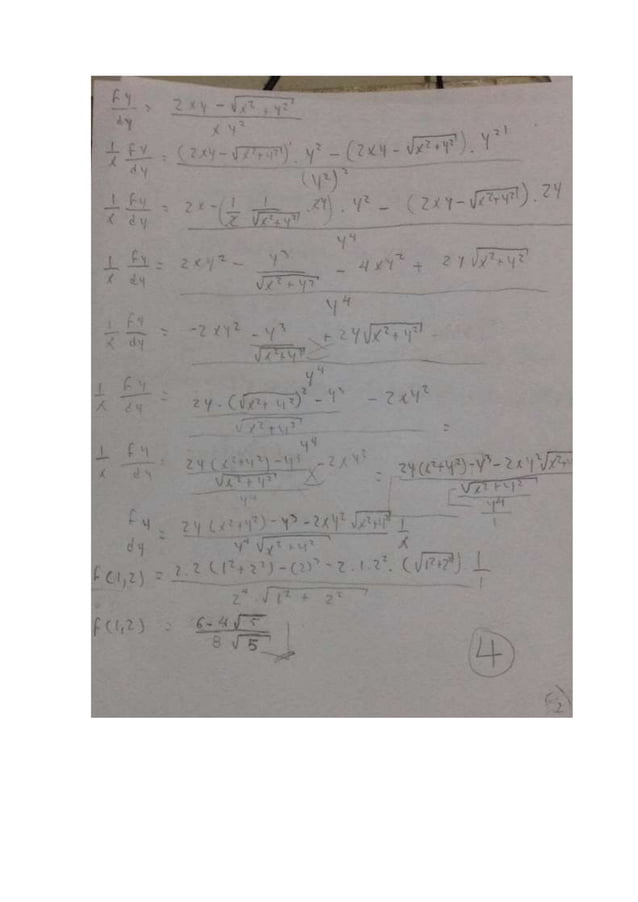 fy/dy = (2xy - √(x² + y²)) / (xy²)
1/x fy/dy = ((2xy - √(x²+y²))' · y² - (2xy - √(x²+y²)) · y²') / (y²)²
1/x fy/dy = (2x - (1/2 1/√(x²+y²) · 2y) · y² - (2xy - √(x²+y²)) · 2y) / y⁴
1/x fy/dy = (2xy² - y³/√(x²+y²) - 4xy² + 2y√(x²+y²)) / y⁴
1/x fy/dy = (-2xy² - y³/√(x²+y²) + 2y√(x²+y²)) / y⁴
1/x fy/dy = ((2y · (√(x²+y²))² - y³)/√(x²+y²) - 2xy²) / y⁴ =
1/x fy/dy = ((2y(x²+y²) - y³)/√(x²+y²) - 2xy²) / y⁴ = ((2y(x²+y²) - y³ - 2xy²√(x²+y)/√(x²+y²)) / (y⁴/1)
fy/dy = (2y(x²+y²) - y³ - 2xy²√(x²+y²)) / (y⁴√(x²+y²)) 1/x
f(1,2) = (2·2(1²+2²) - (2)³ - 2·1·2² · (√(1²+2²))) / (2⁴ · √(1² + 2²)) 1/1
f(1,2) = (6-4√5) / (8√5)
4